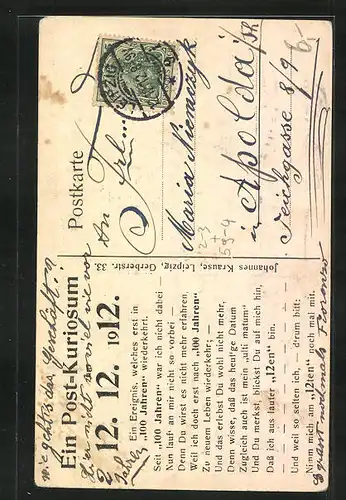 Ein Post-Kuriosum
12. 12. 1912.
Ein Ereignis, welches erst in
„100 Jahren“ wiederkehrt.
Seit „100 Jahren“ war ich nicht dabei —
Nun lauf an mir nicht so vorbei —
Denn Du wirst es nicht mehr erfahren,
Weil ich doch erst nach „100 Jahren“
Zu neuem Leben wiederkehr;
Und das erlebst Du wohl nicht mehr,
Denn wisse, daß das heut'ge Datum
Zugleich auch ist mein „ulti matum“
Und Du merkst, blickst Du auf mich hin,
Daß ich aus lauter „12en“ bin.
Und weil so selten ich, — drum bitt:
Nimm mich am „12ten“ noch mal mit.
Johannes Krause, Leipzig, Gerberstr. 33.
Postkarte
An Frl.
Maria Niemczyk
in Apolda i/Th
Teichgasse 8/9